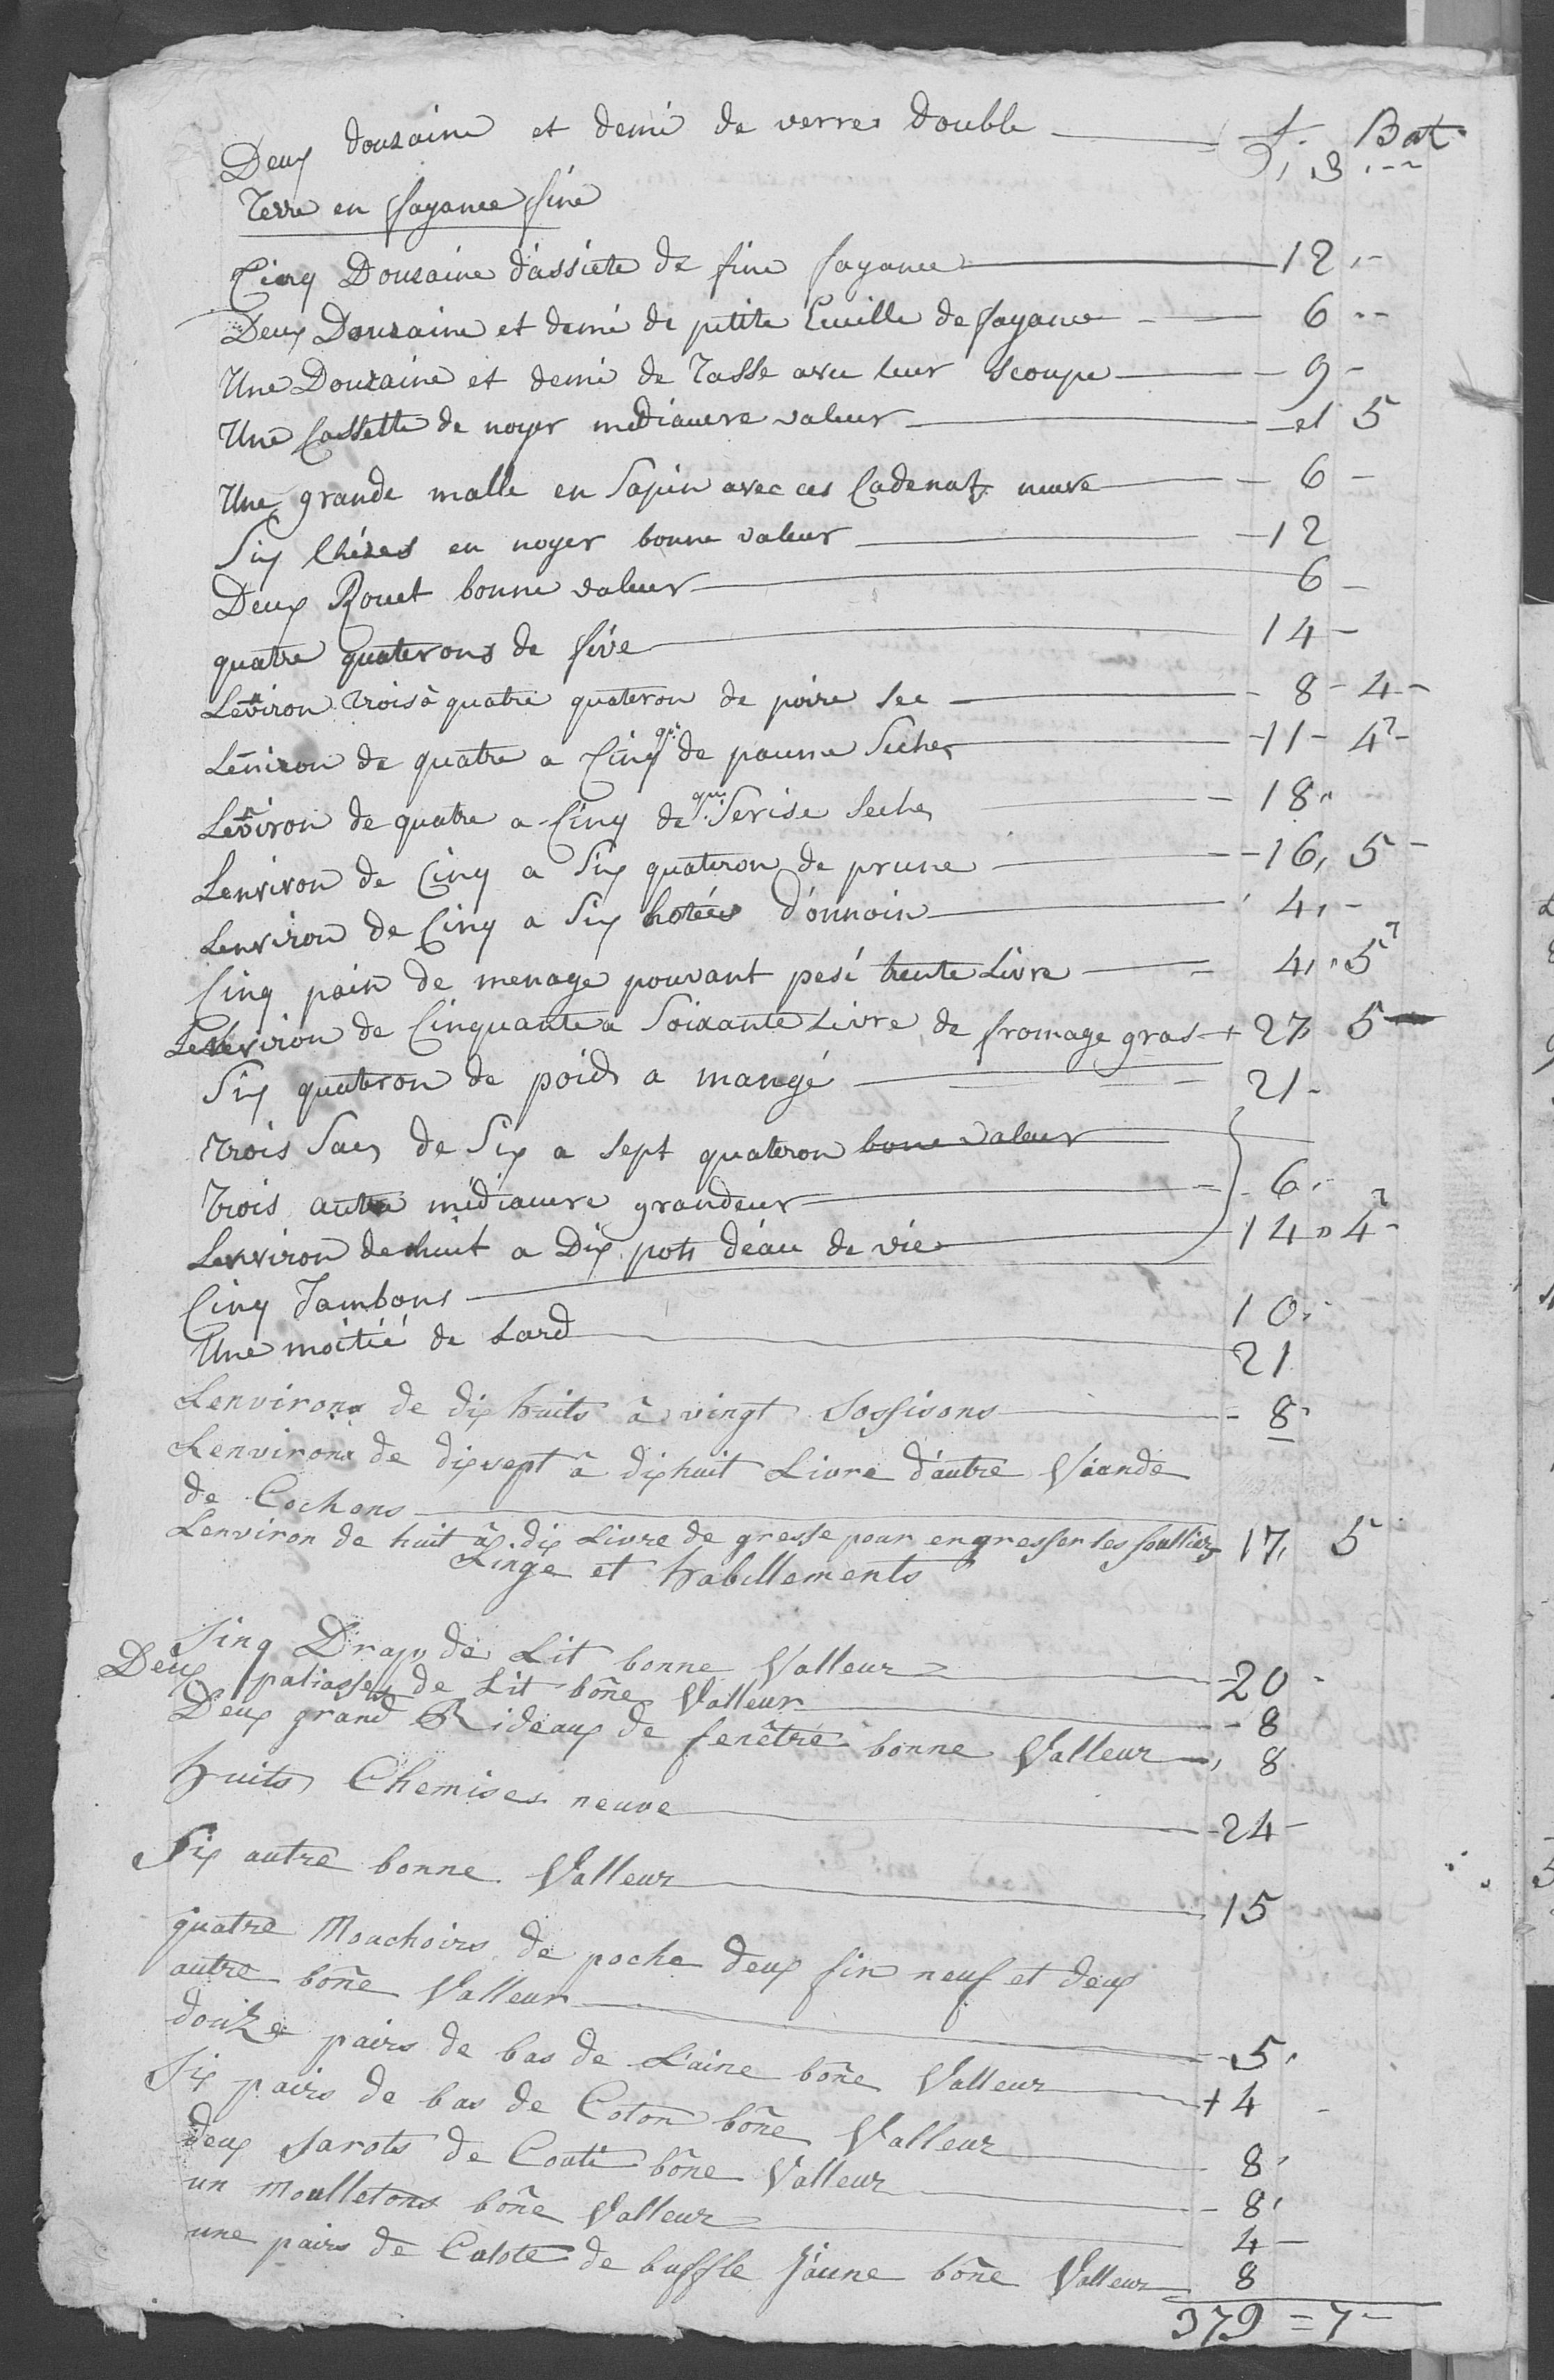 f. Bat.
Deux douzaine et demi de verres double 3
Terre en fayance fine
Cinq Douzaine d'assiete de fine fayance 12
Deux Douzaine et demi de petite Ecuille de fayance 6
Une Douzaine et demi de Tasse avec leur Scoupe 9
Une Cassette de noyer mediauvre valeur 5
Une grande malle en Sapin avec ces Cadenat neuve 6
Six Chéses en noyer bonne valeur 12
Deux Rouet bonne valeur 6
quatre quaterons de féve 14
Lenviron trois à quatre quateron de poire sec 8 4
Lenviron de quatre a Cinq qr. de paume Seches 11 4
Lenviron de quatre a Cinq de qur. Serise Seches 18
Lenviron de Cinq a Six quateron de prune 16 5
Lenviron de Cinq a Six hotées d'onnoin 4
Cinq pain de menage pouvant pesé trente Livre 4 5
Lenviron de Cinquante a Soixante Livre de fromage gras 27 5
Six quateron de poids a mangé 21
Trois Sacs de Six a sept quateron bone valeur
Trois autre mediauvre grandeur 6
Lenviron de huit a Dix pots déau de vie 14 4
Cinq Jambons 10
Une moitié de Lard 21
Lenvirons de dix huits à vingt Sossisons 8
Lenvirons de dixsept à dixhuit Livre d'autre Viande
de Cochons
Lenviron de huit à dix Livre de gresse pour engresser les soulliers 17 5
Linge et habillements
Sinq Draps de Lit bonne Valleur 20
Deux paliasses de Lit boñe Valleur 8
Deux grand Rideaux de fenêtre bonne Valleur 8
huits Chemises neuve 24
Six autre bonne Valleur 15
quatre Mouchoirs de poche deux fin neuf et deux
autre boñe Valleur 5
douze pairs de bas de Laine boñe Valleur 4
Six pairs de bas de Coton boñe Valleur 8
deux Sarots de Couti boñe Valleur 8
un Moulletons boñe Valleur 4
une pairs de Culote de buffle jaune boñe Valleur 8
379 = 7